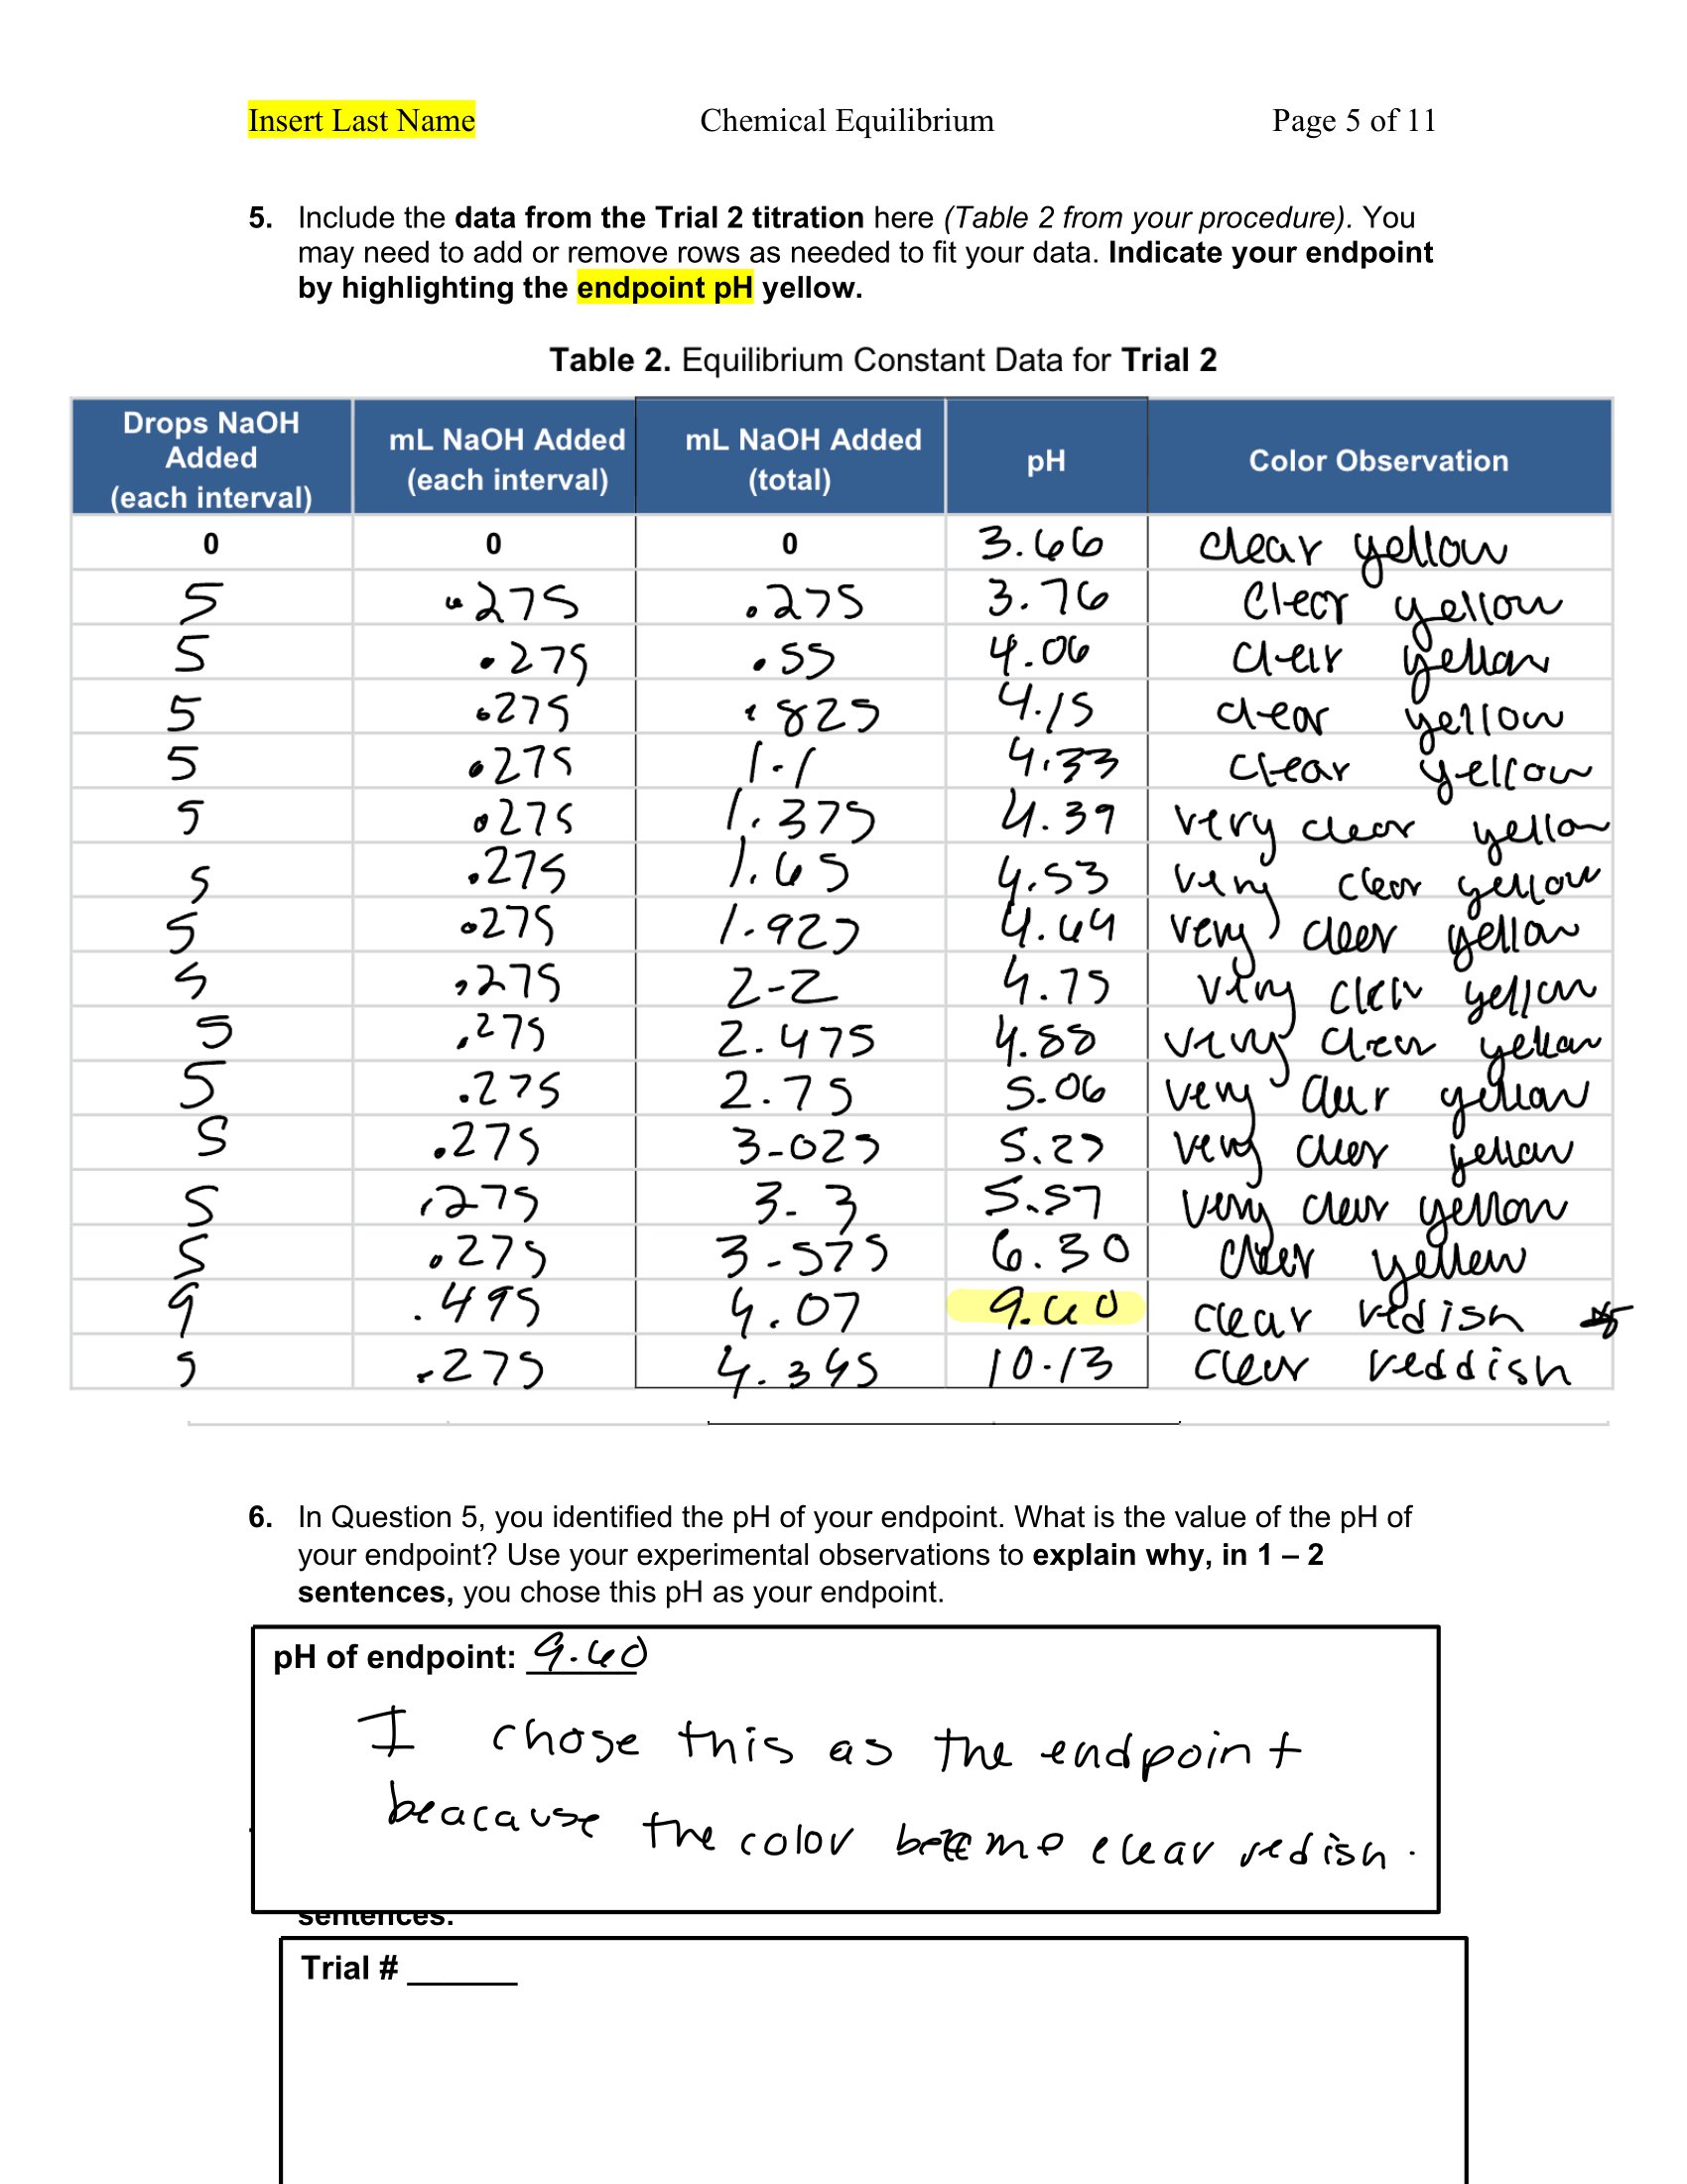 Insert Last Name Chemical Equilibrium Page 5 of 11
5. Include the data from the Trial 2 titration here (Table 2 from your procedure). You
may need to add or remove rows as needed to fit your data. Indicate your endpoint
by highlighting the endpoint pH yellow.
Table 2. Equilibrium Constant Data for Trial 2
Drops NaOH Added (each interval) mL NaOH Added (each interval) mL NaOH Added (total) pH Color Observation
0 0 0 3.66 clear yellow
5 .275 .275 3.76 clear yellow
5 .275 .55 4.06 clear yellow
5 .275 .825 4.15 clear yellow
5 .275 1.1 4.33 clear yellow
5 .275 1.375 4.39 very clear yellow
5 .275 1.65 4.53 very clear yellow
5 .275 1.925 4.64 very clear yellow
5 .275 2.2 4.75 very clear yellow
5 .275 2.475 4.88 very clear yellow
5 .275 2.75 5.06 very clear yellow
5 .275 3.025 5.25 very clear yellow
5 .275 3.3 5.57 very clear yellow
5 .275 3.575 6.30 clear yellow
9 .495 4.07 9.60 clear redish
5 .275 4.345 10.13 clear reddish
6. In Question 5, you identified the pH of your endpoint. What is the value of the pH of
your endpoint? Use your experimental observations to explain why, in 1 – 2
sentences, you chose this pH as your endpoint.
pH of endpoint: 9.60
I chose this as the endpoint
beacause the color became clear redish.
sentences.
Trial #